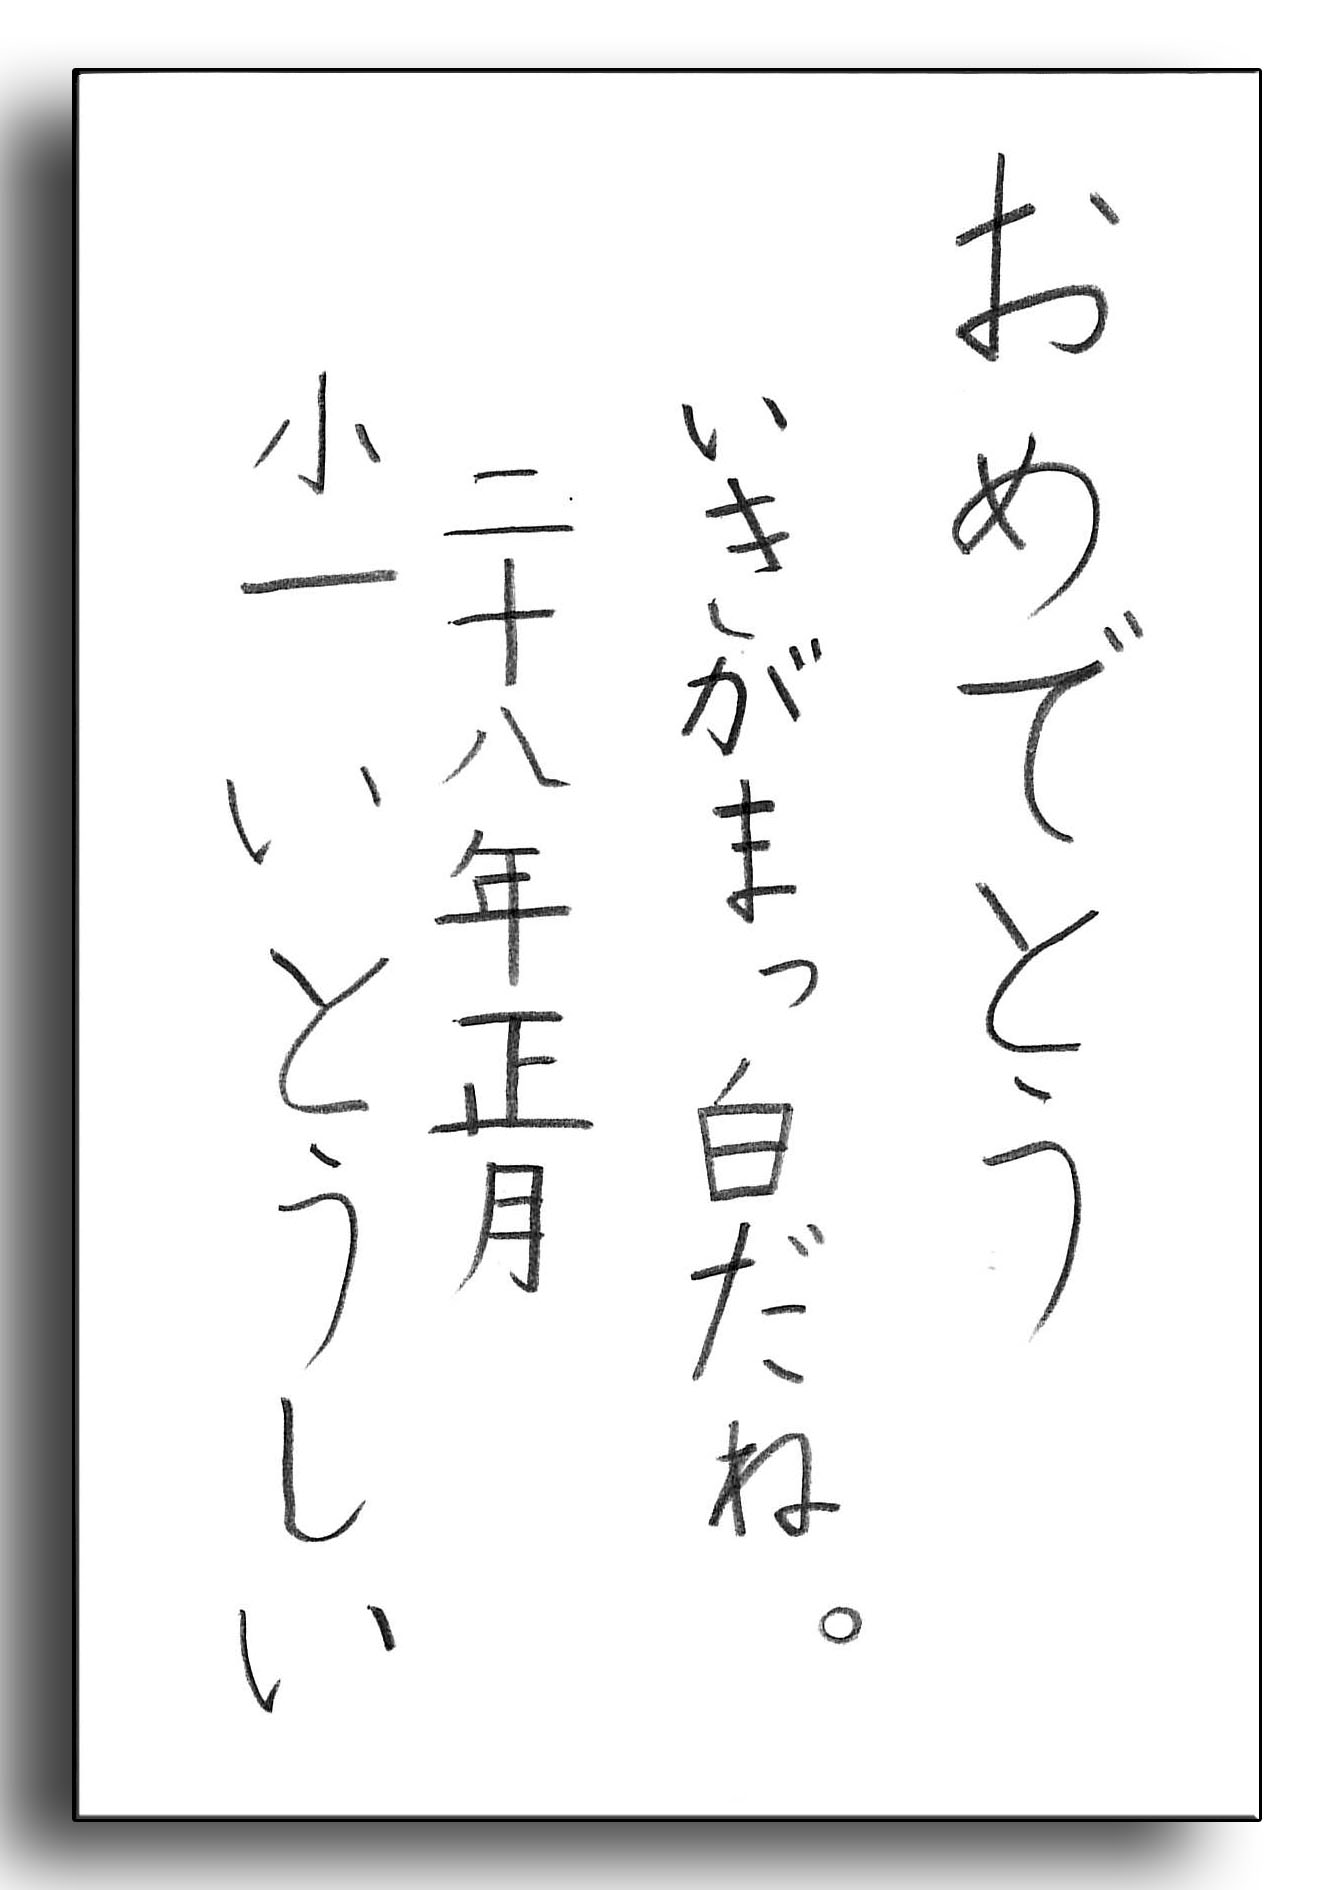 おめでとう
いきがまっ白だね。
二十八年正月
小一 いとうしい